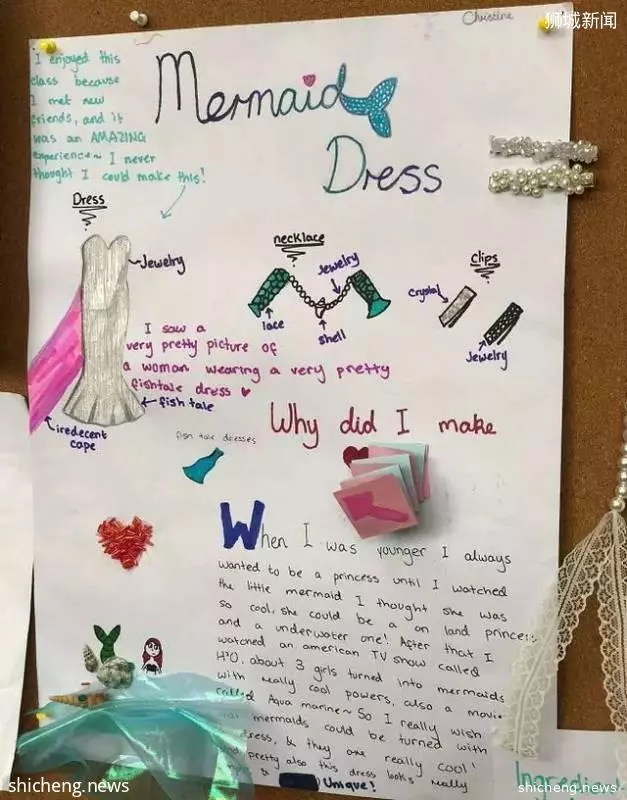 Christine
狮城新闻
I enjoyed this
class because
I met new
friends, and it
was an AMAZING
experience~ I never
thought I could make this!
Mermaid
Dress
Dress
Jewelry
necklace
Jewelry
lace
shell
clips
crystal
Jewelry
I saw a
very pretty picture of
a woman wearing a very pretty
fishtale dress
fish tale
iredecent
cape
fish tale dresses
Why did I make
When I was younger I always
wanted to be a princess until I watched
the little mermaid I thought she was
so cool, she could be a on land princess
and a underwater one! After that I
watched an american TV show called
H2O, about 3 girls turned into mermaids
with really cool powers, also a movie
called Aqua marine~ So I really wish
mermaids could be turned with
dress, & they are really cool
and pretty also this dress looks really
& Unique!
Ingredien
shicheng.news
shicheng.news